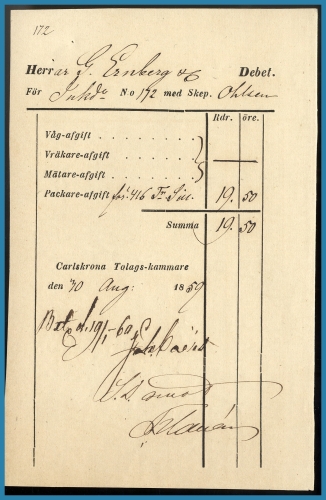 172
Herrar G. Ernberg & C Debet.
För Inhda No 172 med Skep. Ohlsen
Rdr. öre.
Våg-afgift . . . . . . . . .
Vräkare-afgift . . . . . . .
Mätare-afgift . . . . . . .
Packare-afgift för 416 Tr Sill. 19. 50
Summa 19. 50
Carlskrona Tolags-kammare
den 30 Aug: 1859
Bet. d. 19/1 -60